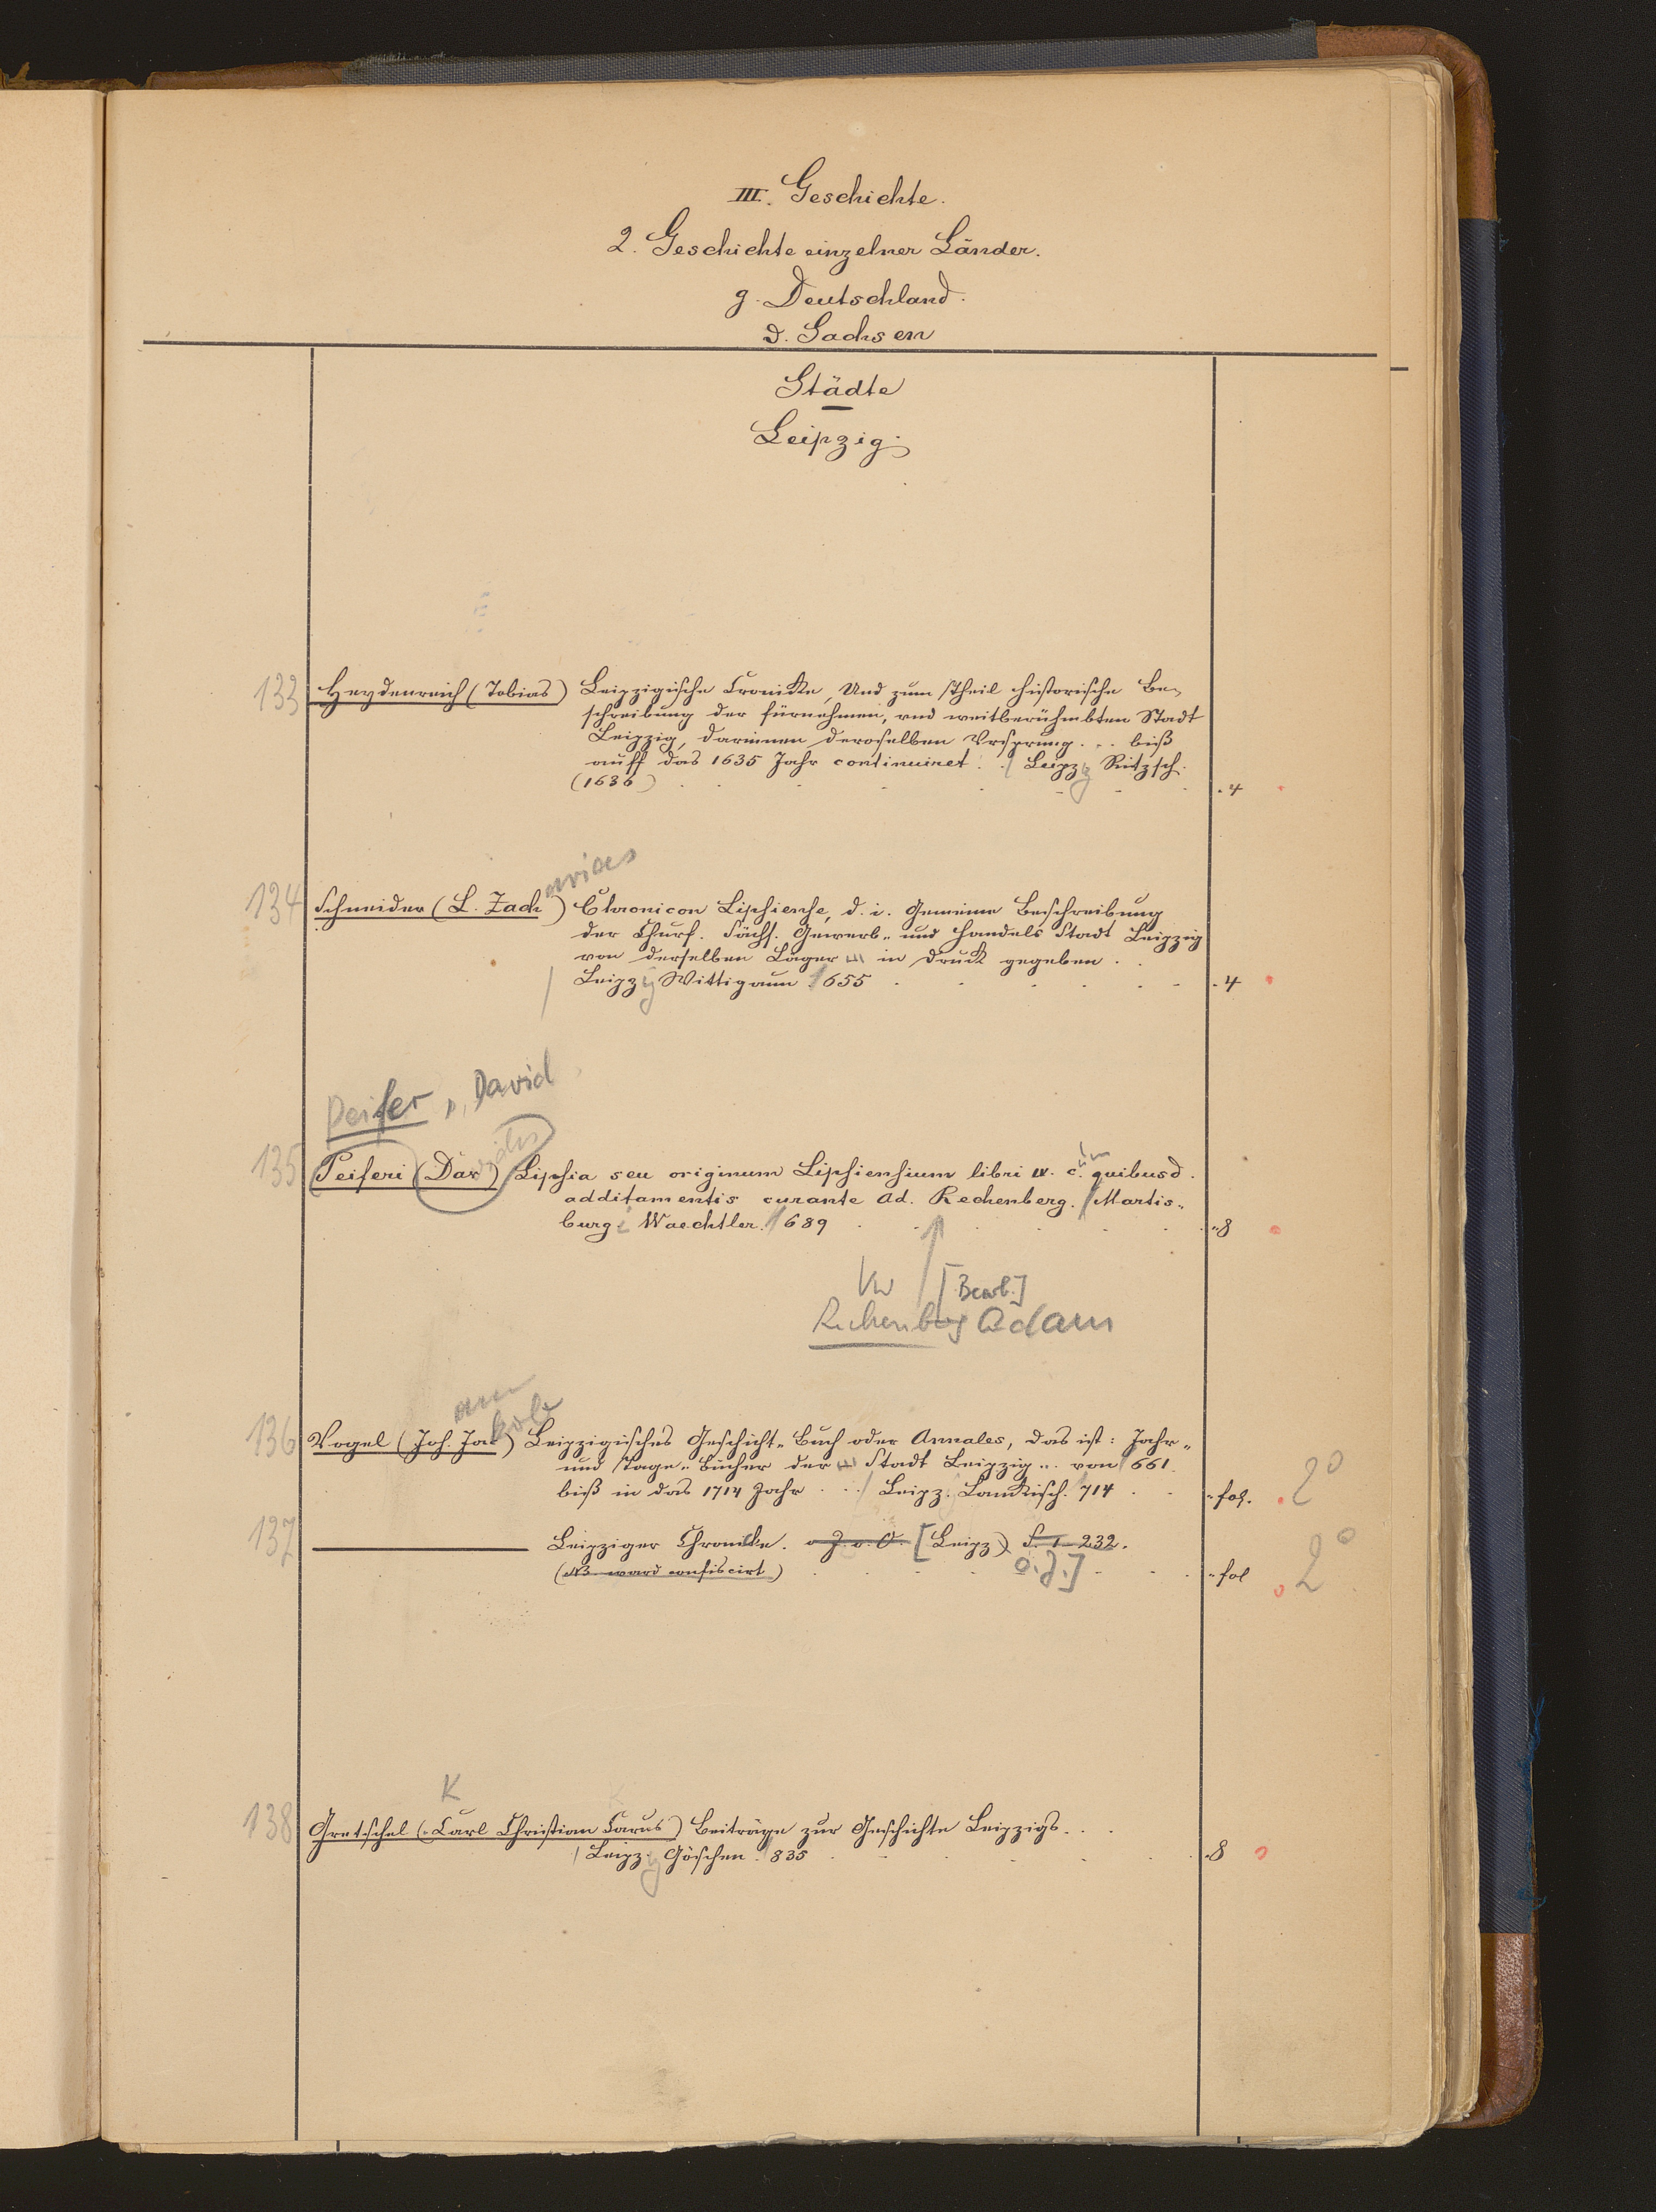 III. Geschichte.
2. Geschichte einzelner Länder.
g. Deutschland.
d. Sachsen
Städte
Leipzig.
133 Heydenreich (Tobias) Leipzigische Cronicke, Und zum Theil historische Be-
schreibung der fürnehmen, und weitberühmbten Stadt
Leipzig, darinnen deroselben Ursprung ... biß
auff das 1635 Jahr continuiret. / Leipzg Ritzsch.
(1636) 4
arias
134 Schneider (L. Zach) Chronicon Lipsiense, d. i. Gemeine Beschreibung
der Churf. Sächs. Gewerb- und Handels Stadt Leipzig
von derselben Läger in Druck gegeben.
/ Leipzg Wittigaun 1655 4
Peifer, David
135 Peiferi (Dav) Lipsia seu originum Lipsiensium libri IV. c. quibusd.
additamentis curante Ad. Rechenberg. / Martis-
burg Waechtler. 1689 8
Vw [Bearb.]
Rechenberg Adam
ann
kob
136 Vogel (Joh. Jac) Leipzigisches Geschicht-Buch oder Annales, das ist: Jahr-
und Tage-Bücher der Stadt Leipzig ... von 661
biß in das 1714 Jahr . . / Leipz. Lanckisch. 714 fol. 2°
137 Leipziger Chronicke. o J. o. O. [Leipz) S. 1-232.
(NB ward confiscirt) o. J.] fol 2°
K
138 Gretschel (Carl Christian Carus) Beiträge zur Geschichte Leipzigs. . .
/ Leipz.g Göschen. 835 8